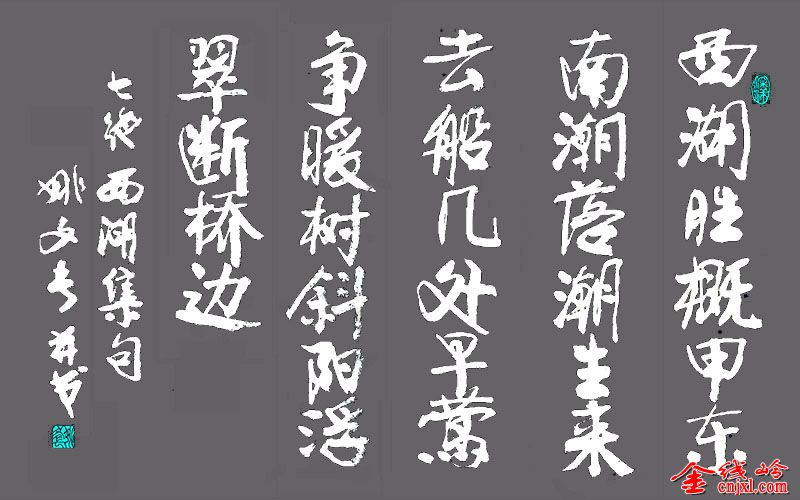 西湖胜概甲东
南潮落潮生来
去船几处早莺
争暖树斜阳浮
翠断桥边
七绝西湖集句
姚文长并书
金线岭
cnjxl.com